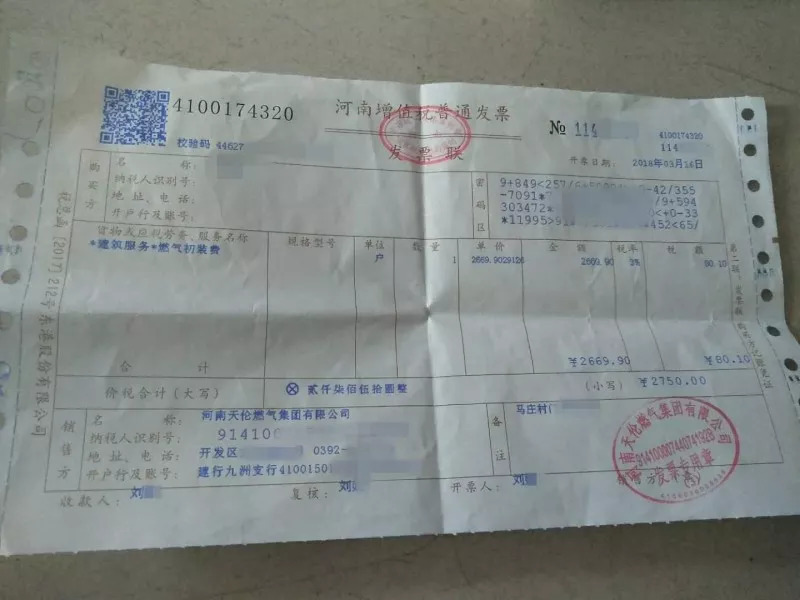 4100174320
河南增值税普通发票
发票联
№ 114
4100174320
114
校验码 44627
开票日期: 2018年03月14日
购买方
名 称:
纳税人识别号:
地 址、电 话:
开户行及账号:
密码区
9+849<257/6+
-42/355
-7091*
/9+594
303472
<+0-33
*11995>91
+452<65/
货物或应税劳务、服务名称 规格型号 单位 数 量 单 价 金 额 税率 税 额
*建筑服务*燃气初装费 户 1 2669.9029126 2669.90 3% 80.10
合 计 ¥2669.90 ¥80.10
价税合计(大写) ⊗ 贰仟柒佰伍拾圆整 (小写) ¥2750.00
销售方
名 称: 河南天伦燃气集团有限公司
纳税人识别号: 914100
地 址、电 话: 开发区 0392-
开户行及账号: 建行九洲支行41001501
备注
马庄村
收款人: 刘 复核: 刘 开票人: 刘
河南天伦燃气集团有限公司
发票专用章
第二联:发票联 购买方记账凭证